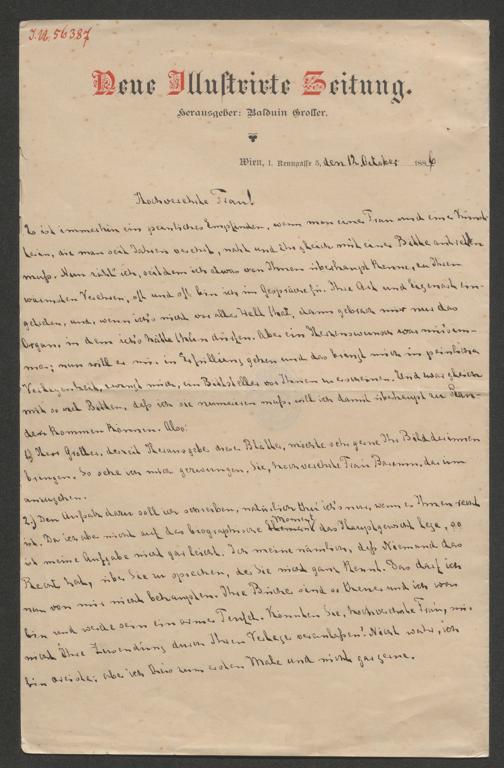 I.N. 56387
Neue Illustrirte Zeitung.
Herausgeber: Balduin Groller.
Wien, I. Renngasse 5, den 12. October 1886
Hochverehrte Frau!
Es ist immerhin ein peinliches Empfinden, wenn man einer Frau und eine Künst-
lerin, die man seit Jahren verehrt, naht und ihr gleich mit einer Bitte
muß. Nun zählt ich, seitdem ich etwas von Ihnen überhaupt kenne, zu Ihren
wärmsten Verehrern, oft und oft bin ich im Gespräche für Ihre Art und Eigenart ein-
getreten, und, wenn ich's nicht vor aller Welt that, dann gebrach mir nur das
Organ, in dem ich's hätte thun dürfen. Aber ein Herzenswunsch war mir's im-
mer; nun will er mir in Erfüllung gehen und das bringt mich in peinlichste
Verlegenheit, zwingt mich, ein Bittsteller vor Ihnen zu erscheinen. Und zwar gleich
mit so viel Bitten, daß ich sie numeriren muß, will ich damit überhaupt zu Ran-
de kommen können. Also:
1.) Herr Groller, derzeit Herausgeber dieses Blattes, möchte sehr gerne Ihr Bild darinnen
bringen. So sehe ich mich gezwungen, Sie, hochverehrte Frau Baronin, darum
anzugehen.
2.) Den Aufsatz dazu soll ich schreiben, natürlich thu' ich's nur, wenn es Ihnen recht
ist. Da ich aber nicht auf das biographische Moment das Hauptgewicht lege, so
ist meine Aufgabe nicht gar leicht. Ich meine nämlich, daß Niemand das
Recht hat, über Sie zu sprechen, der Sie nicht ganz kennt. Das darf ich
nun von mir nicht behaupten. Ihre Bücher sind so theuer und ich war,
bin und werde sein ein armer Teufel. Könnten Sie, hochverehrte Frau, mir
nicht Ihre Zusendung durch Ihren Verleger veranlaßen? Nicht wahr, ich
bin dreist; aber ich bin's zum ersten Male und nicht gar gerne.